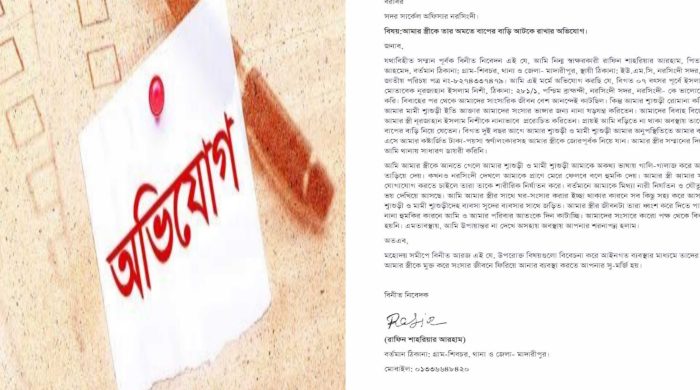 অভিযোগ
বরাবর
সদর সার্কেল অফিসার নরসিংদী।
বিষয়:আমার স্ত্রীকে তার অমতে বাপের বাড়ি আটকে রাখার অভিযোগ।
জনাব,
যথাবিহীত সম্মান পূর্বক বিনীত নিবেদন এই যে, আমি নিম্ন স্বাক্ষরকারী রাফিন শাহরিয়ার আরহাম, পিতা
আহমেদ, বর্তমান ঠিকানা: গ্রাম-শিবচর, থানা ও জেলা- মাদারীপুর, স্থায়ী ঠিকানা: ইউ.এম.সি, নরসিংদী সদর,
জাতীয় পরিচয় পত্র নং-৮২৭৪৩৩৭৪৭৯। আমি এই মর্মে অভিযোগ করছি যে, বিগত ০৭ বৎসর পূর্বে ইসলাম
মোতাবেক নূরজাহান ইসলাম নিশী, ঠিকানা: ২৮১/১, পশ্চিম ব্রাহ্মন্দী, নরসিংদী সদর, নরসিংদী- কে ভালোবে
করি। বিবাহের পর থেকে আমাদের সাংসারিক জীবন বেশ আনন্দেই কাটছিল। কিন্তু আমার শ্বাশুড়ী রোমানা
ও মামী শ্বাশুড়ী ইতি আক্তার আমাদের সংসার ভাঙ্গার জন্য নানা ষড়যন্ত্র করিতেন। আমাদের বিবাহ বিচ্ছে
আমার স্ত্রী নূরজাহান ইসলাম নিশীকে নানাভাবে প্ররোচিত করিতেন। প্রায়ই আমি বাড়িতে না থাকা অবস্থায় তাকে
বাপের বাড়ি নিয়ে যেতেন। বিগত দুই বছর আগে আমার শ্বাশুড়ী ও মামী শ্বাশুড়ী আমার অনুপস্থিতিতে আমার ব
এসে আমার কষ্টার্জিত টাকা-পয়সা স্বর্ণালংকারসহ আমার স্ত্রীকে জোরপূর্বক নিয়ে যান। আমার স্ত্রীর সম্মানের দি
আমি থানায় সাধারণ ডায়রী করিনি।
আমি আমার স্ত্রীকে আনতে গেলে আমার শ্বাশুড়ী ও মামী শ্বাশুড়ী আমাকে অকথ্য ভাষায় গালি-গালাজ করে আ
তাড়িয়ে দেয়। কখনও নরসিংদী দেখলে আমাকে প্রাণে মেরে ফেলবে বলে হুমকি দেয়। আমার স্ত্রী আমার স
যোগাযোগ করতে চাইলে তারা তাকে শারীরিক নির্যাতন করে। বর্তমানে আমাকে মিথ্যা নারী নির্যাতন ও যৌতু
ভয় দেখিয়ে আসছে। আমি আমার স্ত্রীর সাথে ঘর-সংসার করার ইচ্ছা থাকার কারনে সব কিছু সহ্য করে আস
শ্বাশুড়ী ও মামী শ্বাশুড়ীদের ব্যবসা সুদের ব্যবসার সাথে জড়িত। আমার স্ত্রীর জীবনটা তারা ধ্বংশ করে দিতে পা
নানা হুমকির কারনে আমি ও আমার পরিবার আতংকে দিন কাটাচ্ছি। আমাদের সংসারে কারো পক্ষ থেকে বি
হয়নি। এমতাবস্থায়, আমি উপায়ান্তর না দেখে অসহায় অবস্থায় আপনার শরনাপন্ন হলাম।
অতএব,
মহোদয় সমীপে বিনীত আরজ এই যে, উপরোক্ত বিষয়গুলো বিবেচনা করে আইনগত ব্যবস্থার মাধ্যমে তাদের
আমার স্ত্রীকে মুক্ত করে সংসার জীবনে ফিরিয়ে আনার ব্যবস্থা করতে আপনার সু-মর্জি হয়।
বিনীত নিবেদক
(রাফিন শাহরিয়ার আরহাম)
বর্তমান ঠিকানা: গ্রাম-শিবচর, থানা ও জেলা- মাদারীপুর।
মোবাইল: ০১৩৩৬৬৪৮৪২০